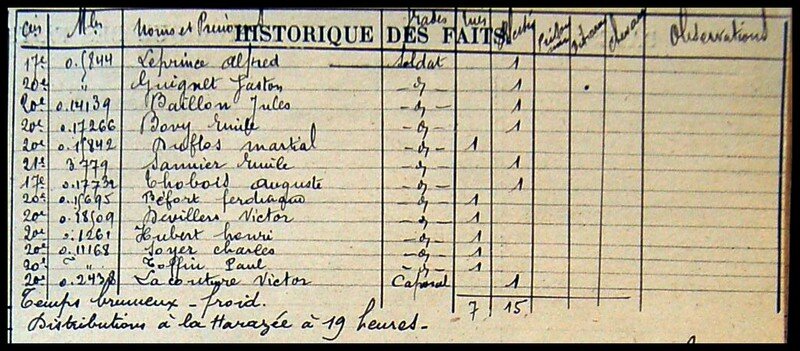 Cies Mles Noms et Prénoms Grades Tués Blessés Observations
HISTORIQUE DES FAITS.
17e 0.5844 Leprince Alfred Soldat 1
20e " Guignet Gaston -d- 1
20e 0.14139 Batillon Jules -d- 1
20e 0.17266 Bovy Emile -d- 1
20e 0.15842 Duflos martial -d- 1
21e 3779 Sannier Emile -d- 1
17e 0.17732 Thobois auguste -d- 1
20e 0.15695 Béfort -d- 1
20e 0.18509 Devillers Victor -d- 1
20e 0.1261 Hubert henri -d- 1
20e 0.11168 Soyer charles -d- 1
20e " Toffin Paul -d- 1
20e 0.2438 Lacouture Victor Caporal 1
Temps brumeux - froid. 7 15
Distributions à la Harazée à 19 heures-